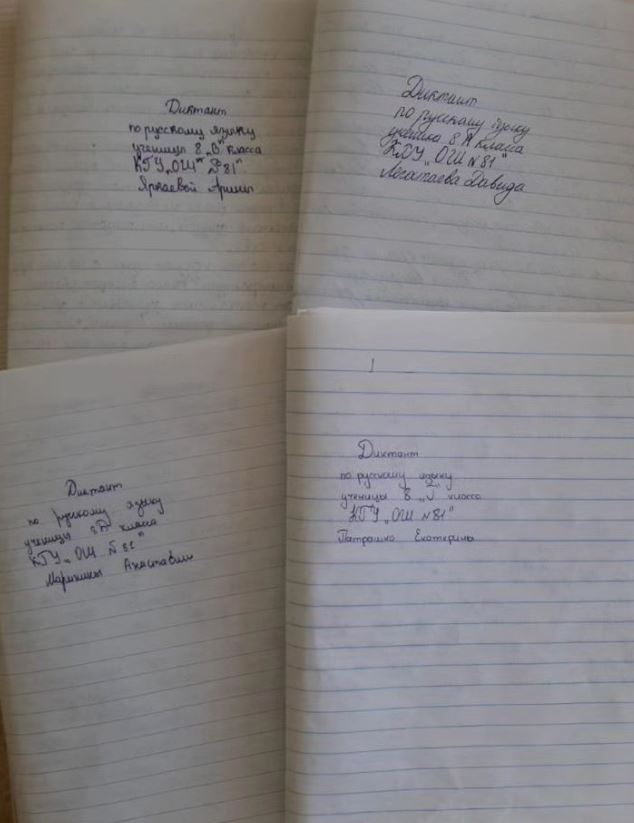 Диктант
по русскому языку
ученицы 8 „В" класса
КГУ „ОШ №81"
Диктант
по русскому языку
ученика 8 А класса
КГУ „ОШ №81"
Давида
Диктант
по русскому языку
ученицы 8А класса
КГУ „ОШ №81"
Диктант
по русскому языку
ученицы 8 класса
КГУ „ОШ №81"
Патрашко Екатерины